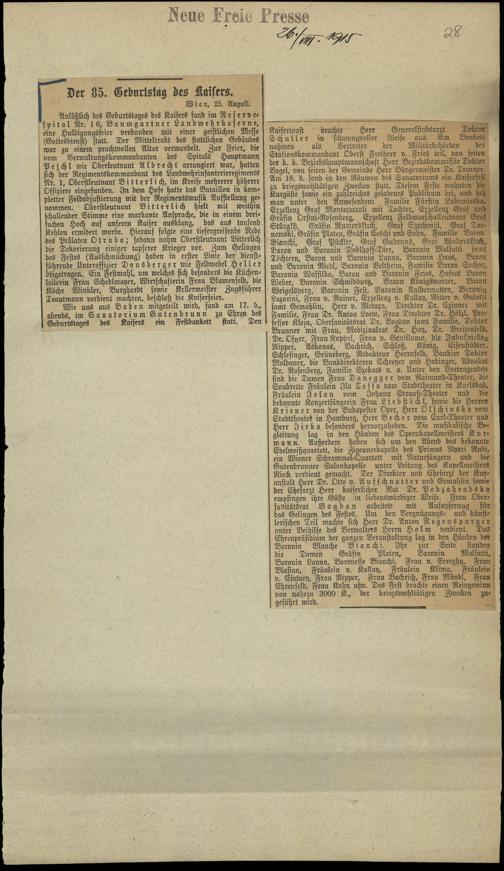 Neue Freie Presse
26./VIII. 1915
28
Der 85. Geburtstag des Kaisers.
Wien, 25. August.
Anläßlich des Geburtstages des Kaisers fand im Reserve-
spital Nr. 16, Baumgartner Landwehrkaserne,
eine Huldigungsfeier verbunden mit einer geistlichen Messe
(Gottesdienst) statt. Der Mitteltrakt des stattlichen Gebäudes
war zu einem prachtvollen Altar verwandelt. Zur Feier, die
vom Verwaltungskommandanten des Spitals Hauptmann
Peschl wie Oberleutnant Albrecht arrangiert war, hatten
sich der Regimentskommandant des Landwehrinfanterieregiments
Nr. 1, Oberstleutnant Bitterlich, im Kreise mehrerer höherer
Offiziere eingefunden. In dem Hofe hatte das Bataillon in kom-
pletter Feldausrüstung mit der Regimentsmusik Aufstellung ge-
nommen. Oberstleutnant Bitterlich hielt mit weithin
schallender Stimme eine markante Ansprache, die in einem drei-
fachen Hoch auf unseren Kaiser ausklang, das aus tausend
Kehlen erwidert wurde. Hierauf folgte eine tiefergreifende Rede
des Prälaten Otruba; sodann nahm Oberstleutnant Bitterlich
die Dekorierung einiger tapferer Krieger vor. Zum Gelingen
des Festes (Ausschmückung) haben in erster Linie der dienst-
führende Unteroffizier Donsberger wie Feldwebel Heller
beigetragen. Ein Festmahl, um welches sich besonders die Küchen-
leiterin Frau Schedlmayer, Wirtschafterin Frau Blumenfeld, die
Köche Winkler, Burghardt sowie Kellermeister Zugsführer
Trautmann verdient machten, beschloß die Kaiserfeier.
Wie uns aus Baden mitgeteilt wird, fand am 17. d.,
abends, im Sanatorium Gutenbrunn zu Ehren des
Geburtstages des Kaisers ein Festbankett statt. Den
Kaisertoast brachte Herr Generalstabsarzt Doktor
Schuller in schwungvoller Weise aus. Am Bankett
nahmen als Vertreter der Militärbehörden der
Stationskommandant Oberst Freiherr v. Fries teil, von seiten
der k. k. Bezirkshauptmannschaft Herr Bezirkskommissär Doktor
Vogel, von seiten der Gemeinde Herr Bürgermeister Dr. Trenner.
Am 18. d. fand in den Räumen des Sanatoriums ein Kaiserfest
zu kriegswohltätigen Zwecken statt. Diesem Feste wohnten die
Kurgäste sowie ein zahlreiches geladenes Publikum bei, und sah
man unter den Anwesenden: Familie Fürstin Lubomirska,
Exzellenz Graf Montecuccoli mit Tochter, Exzellenz Graf und
Gräfin Orsini-Rosenberg, Exzellenz Feldmarschalleutnant Graf
Stürgkh, Gräfin Kumerskirch, Graf Szechenyi, Graf Tar-
nowski, Gräfin Platen, Gräfin Ceschi und Sohn, Familie Baron
Bianchi, Graf Pückler, Graf Gudenus, Graf Walterskirch,
Baron und Baronin Doblhoff-Dier, Baronin Malfatti samt
Töchtern, Baron und Baronin Lanna, Baronin Haas, Baron
und Baronin Riehl, Baronin Veltheim, Familie Baron Sochor,
Baronin Wassilko, Baron und Baronin Fries, Hofrat Baron
Weber, Baronin Schmidburg, Baron Königswarter, Baron
Weigelsperg, Baronin Fest, Baronin Kalbermatten, Baronin
Lazarini, Frau v. Rainer, Exzellenz v. Kallay, Ritter v. Galatti
samt Gemahlin, Herr v. Metaxa, Direktor Dr. Czinner mit
Familie, Frau Dr. Anton Loew, Frau Direktor Dr. Hölzl, Pro-
fessor Klein, Oberstabsarzt Dr. Bogdan samt Familie, Doktor
Brunner mit Frau, Medizinalrat Dr. Hatz, Dr. Breitenfeld,
Dr. Ofner, Frau Koppel, Frau v. Gentilomo, die Industriellen
Ripper, Askonas, Bachrich, Schloß, König, Eisenstädter,
Schlesinger, Grüneberg, Redakteur Herrnfeld, Bankier Doktor
Moldauer, die Bankdirektoren Schreyer und Habinger, Advokat
Dr. Rosenberg, Familie Szekacs u. a. Unter den Vortragenden
sind die Damen Frau Danegger vom Raimund-Theater, die
Soubrette Fräulein Ila Tessa vom Stadttheater in Karlsbad,
Fräulein Jolan vom Johann Strauß-Theater und die
bekannte Konzertsängerin Frau Liebstöckl, sowie die Herren
Kriener von der Budapester Oper, Herr Olschinsky vom
Stadttheater in Hamburg, Herr Becker vom Carl-Theater und
Herr Jirka besonders hervorzuheben. Die musikalische Be-
gleitung lag in den Händen des Opernkapellmeisters Kur-
mann. Außerdem haben sich um den Abend das bekannte
Edelweißquartett, die Zigeunerkapelle des Primas Nyari Rubi,
ein Wiener Schrammel-Quartett mit Natursängern und die
Gutenbrunner Salonkapelle unter Leitung des Kapellmeisters
Rieck verdient gemacht. Der Direktor und Chefarzt der Kur-
anstalt Herr Dr. Otto v. Aufschnaiter und Gemahlin sowie
der Chefarzt Herr kaiserlicher Rat Dr. Podzahradsky
empfingen ihre Gäste in liebenswürdiger Weise. Frau Ober-
sanitätsrat Bogdan arbeitete mit Aufopferung für
das Gelingen des Festes. Um den Vergnügungs- und künst-
lerischen Teil machte sich Herr Dr. Anton Regenspurger
unter Beihilfe des Verwalters Herrn Holm verdient. Das
Ehrenpräsidium der ganzen Veranstaltung lag in den Händen der
Baronin Blanche Bianchi. Ihr zur Seite standen
die Damen Gräfin Platen, Baronin Malfatti,
Baronin Lanna, Baronesse Bianchi, Frau v. Sereghy, Frau
Blasian, Fräulein v. Kallay, Fräulein Klima, Fräulein
v. Csatary, Frau Ripper, Frau Bachrich, Frau Mändl, Frau
Ehrenfeld, Frau Kohn usw. Das Fest brachte einen Reingewinn
von nahezu 3000 K., der kriegswohltätigen Zwecken zu-
geführt wird.